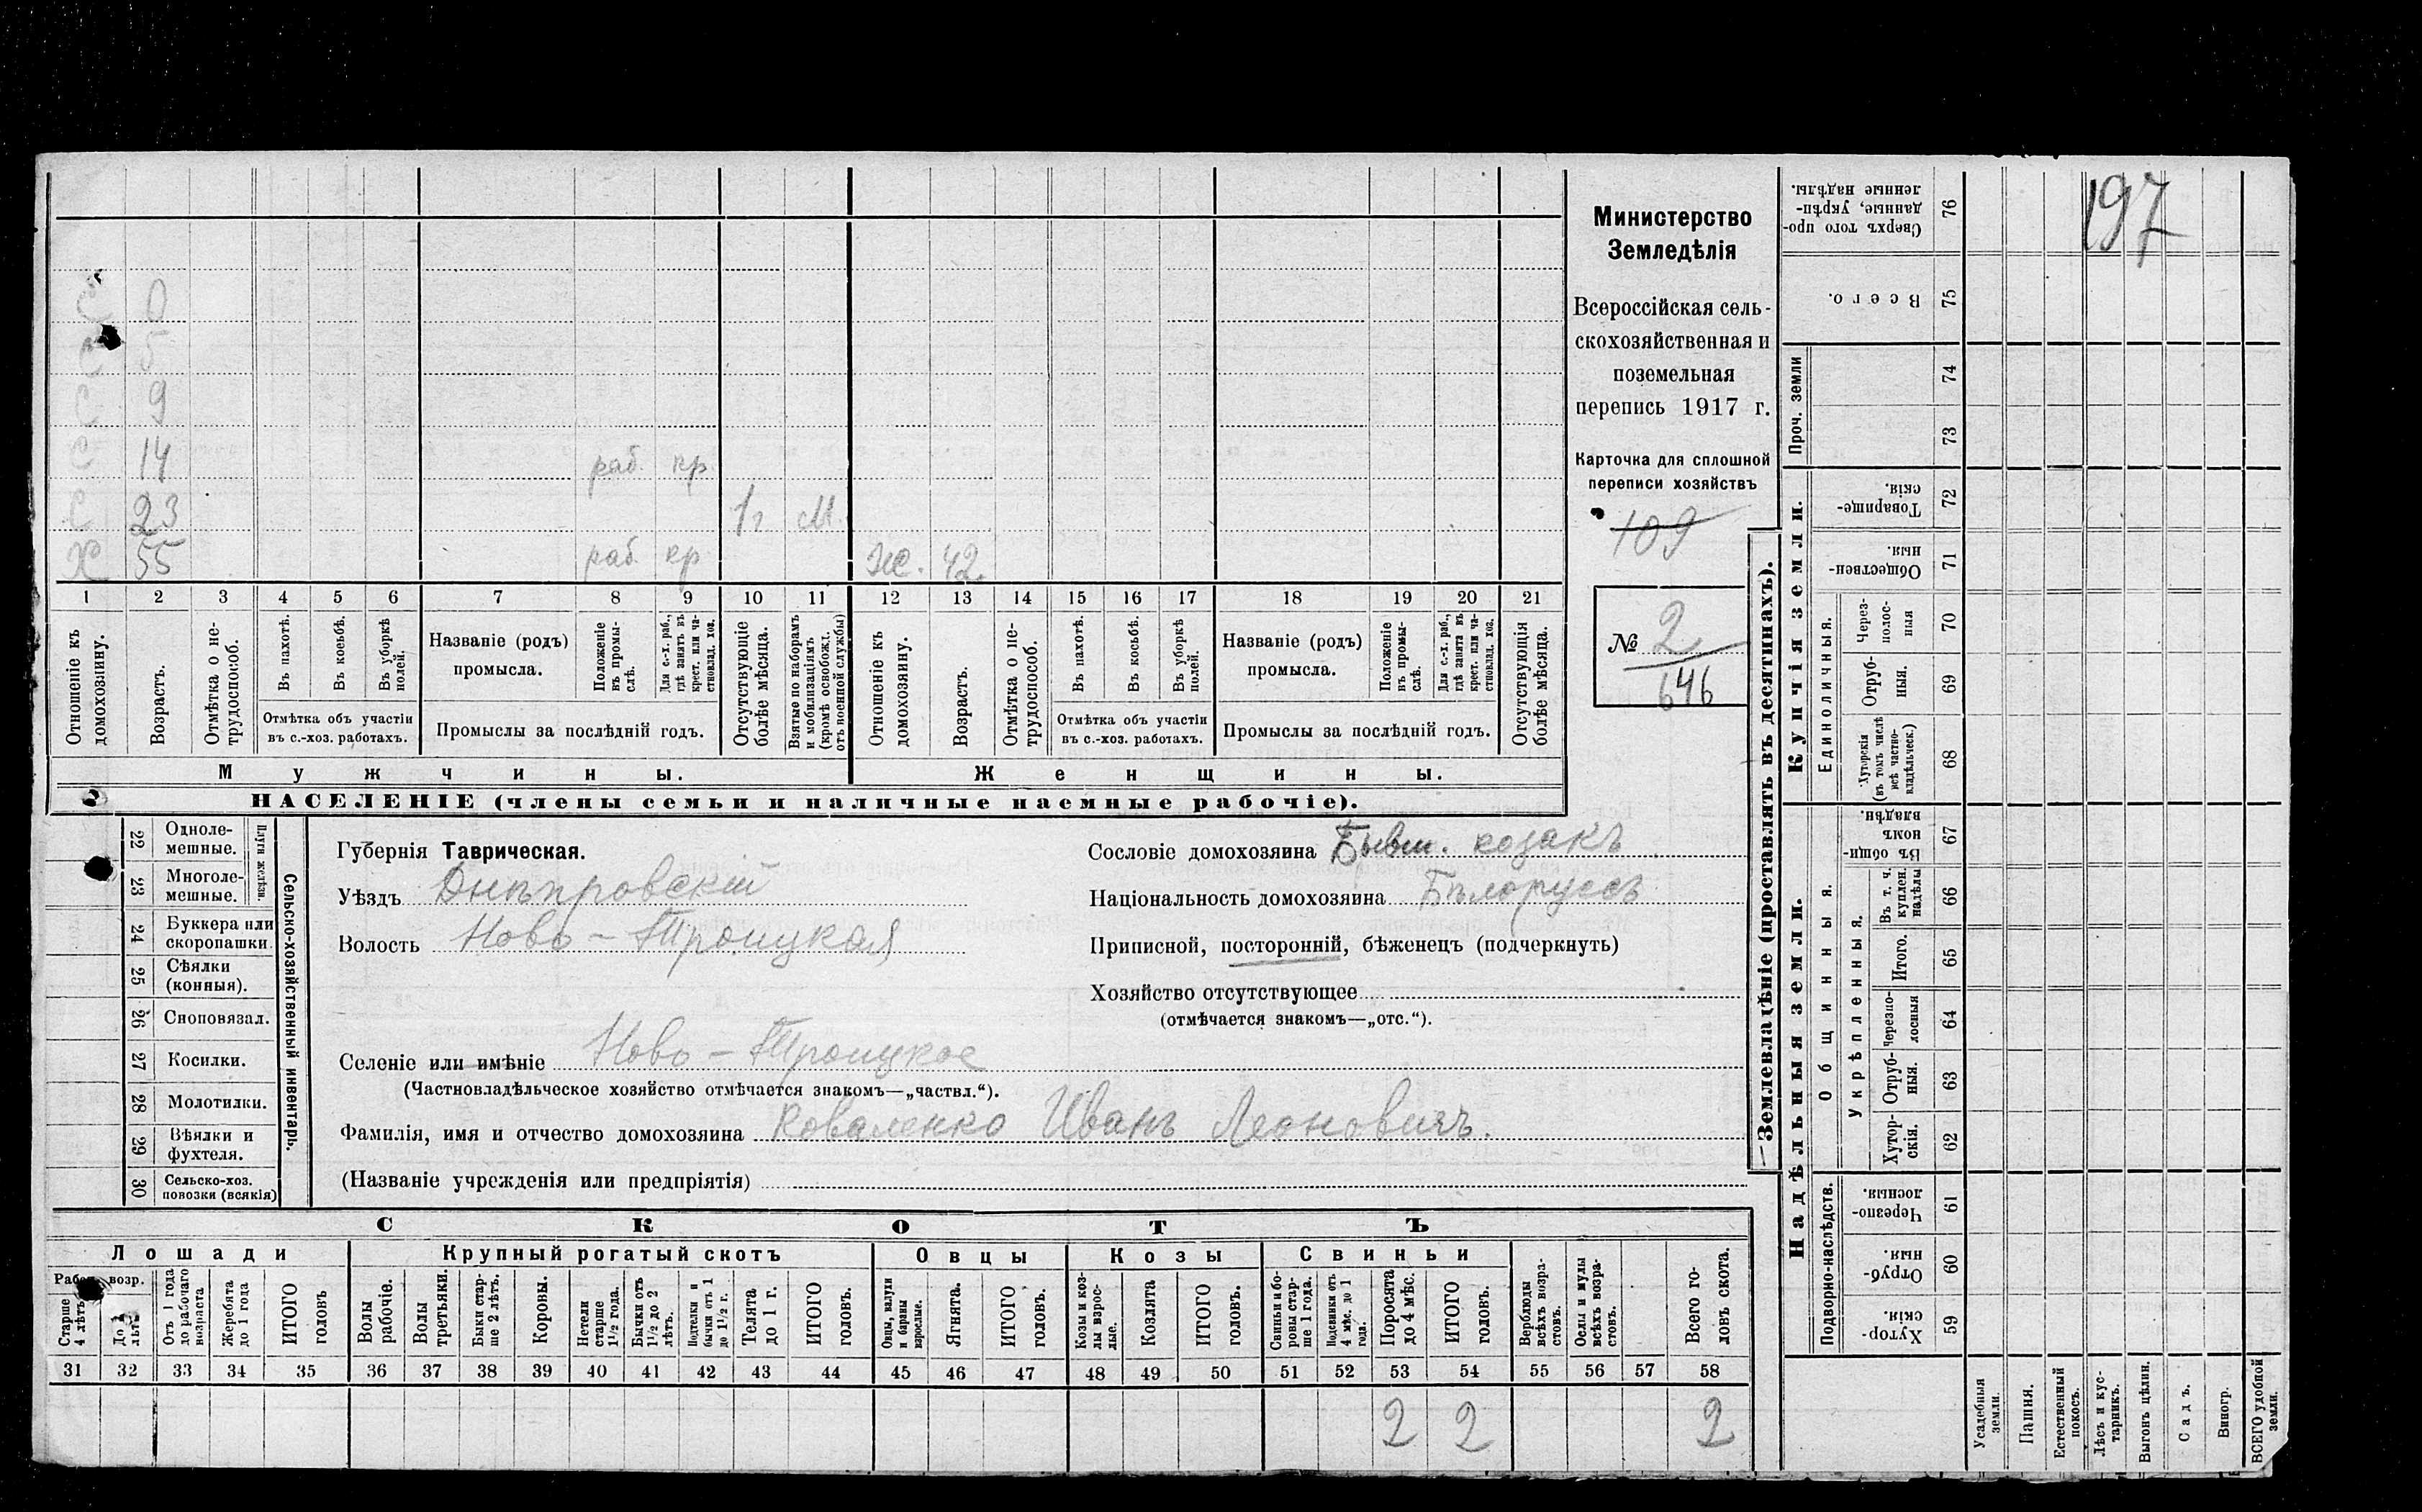 197
Министерство
Земледѣлія
Всероссійская сель-
скохозяйственная и
поземельная
перепись 1917 г.
Карточка для сплошной
переписи хозяйствъ
109
№ 2
646
С 0
С 5
С 9
С 14 раб. кр.
С 23 1 г М.
Х 55 раб. кр Ж. 42.
1 2 3 4 5 6 7 8 9 10 11 12 13 14 15 16 17 18 19 20 21
Отношеніе къ домохозяину.
Возрастъ.
Отмѣтка о не-трудоспособ.
Въ пахотѣ.
Въ косьбѣ.
Въ уборкѣ полей.
Отмѣтка объ участіи
въ с.-хоз. работахъ.
Названіе (родъ)
промысла.
Положеніе въ промы-слѣ.
Для с.-х. раб., гдѣ занятъ въ крест. или ча-стновлад. хоз.
Промыслы за послѣдній годъ.
Отсутствующіе болѣе мѣсяца.
Взятые по наборамъ и мобилизаціямъ (кромѣ освобожд. отъ военной службы)
Отношеніе къ домохозяину.
Возрастъ.
Отмѣтка о не-трудоспособ.
Въ пахотѣ.
Въ косьбѣ.
Въ уборкѣ полей.
Отмѣтка объ участіи
въ с.-хоз. работахъ.
Названіе (родъ)
промысла.
Положеніе въ промы-слѣ.
Для с.-х. раб., гдѣ занята въ крест. или ча-стновлад. хоз.
Промыслы за послѣдній годъ.
Отсутствующія болѣе мѣсяца.
Мужчины. Женщины.
НАСЕЛЕНІЕ (члены семьи и наличные наемные рабочіе).
Сельско-хозяйственный инвентарь.
Плуги желѣзн.
22 Одноле-мешные.
23 Многоле-мешные.
24 Буккера или скоропашки.
25 Сѣялки (конныя).
26 Сноповязал.
27 Косилки.
28 Молотилки.
29 Вѣялки и фухтеля.
30 Сельско-хоз. повозки (всякія)
Губернія Таврическая.
Уѣздъ Днѣпровскій
Волость Ново-Троицкая
Селеніе или имѣніе Ново-Троицкое
(Частновладѣльческое хозяйство отмѣчается знакомъ—„частвл.“).
Фамилія, имя и отчество домохозяина Коваленко Иванъ Леоновичъ.
(Названіе учрежденія или предпріятія)
Сословіе домохозяина Бывш. козакъ
Національность домохозяина Бѣлоруссъ
Приписной, посторонній, бѣженецъ (подчеркнуть)
Хозяйство отсутствующее
(отмѣчается знакомъ—„отс.“).
СКОТЪ
Лошади Крупный рогатый скотъ Овцы Козы Свиньи
Рабоч. возр.
Старше 4 лѣтъ
До 4 лѣтъ
Отъ 1 года до рабочаго возраста
Жеребята до 1 года
ИТОГО головъ
Волы рабочіе.
Волы третьяки.
Быки стар-ше 2 лѣтъ.
Коровы.
Нетели старше 1½ года.
Бычки отъ 1½ до 2 лѣтъ.
Подтелки и бычки отъ 1 до 1½ г.
Телята до 1 г.
ИТОГО головъ.
Овцы, валухи и бараны взрослые.
Ягнята.
ИТОГО головъ.
Козы и коз-лы взрос-лые.
Козлята
ИТОГО головъ.
Свиньи и бо-ровы стар-ше 1 года.
Подсвинки отъ 4 мѣс. до 1 года.
Поросята до 4 мѣс.
ИТОГО головъ.
Верблюды всѣхъ возра-стовъ.
Ослы и мулы всѣхъ возра-стовъ.
Всего го-ловъ скота.
31 32 33 34 35 36 37 38 39 40 41 42 43 44 45 46 47 48 49 50 51 52 53 54 55 56 57 58
2 2 2
Землевладѣніе (проставлять въ десятинахъ).
Надѣльныя земли. Купчія земли.
Подворно-наслѣдств.
Общинныя.
Укрѣпленныя.
Единоличныя.
Проч. земли
76 Сверхъ того про-данные, укрѣп-ленные надѣлы.
75 Всего.
74
73
72 Товарище-скія.
71 Обществен-ныя.
70 Через-полос-ныя
69 Отруб-ныя.
68 Хуторскія (въ томъ числѣ всѣ частно-владѣльческ.)
67 Въ общи-номъ владѣн.
66 Въ т. ч. куплен. надѣлы
65 Итого.
64 Черезпо-лосныя
63 Отруб-ныя.
62 Хутор-скія.
61 Черезпо-лосныя.
60 Отруб-ныя.
59 Хутор-скія.
Усадебныя земли.
Пашня.
Естественный покосъ.
Лѣсъ и кус-тарникъ.
Выгонъ цѣлин.
Садъ.
Виногр.
ВСЕГО удобной земли.